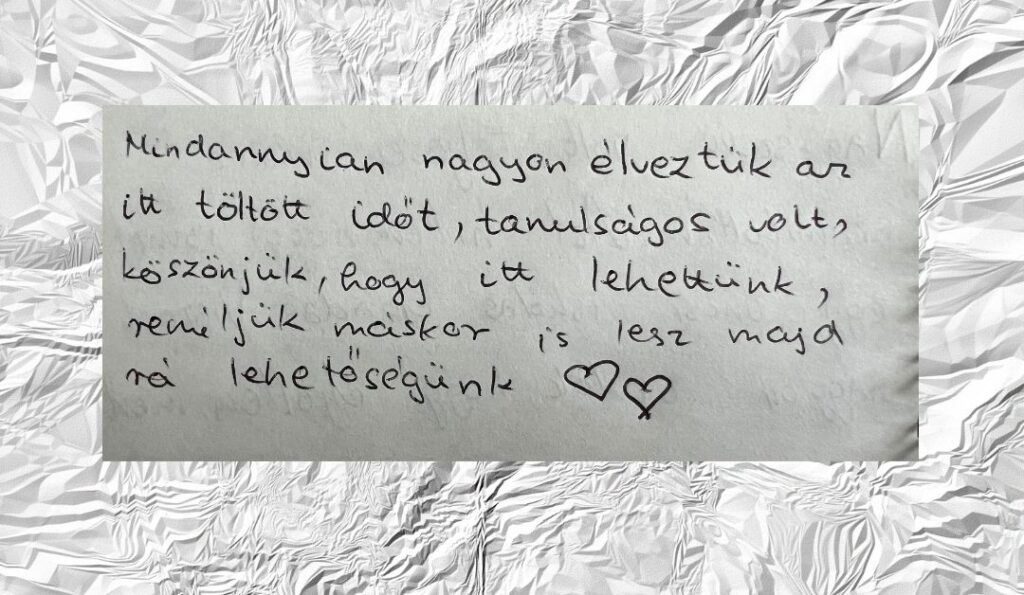 Mindannyian nagyon élveztük az
itt töltött időt, tanulságos volt,
köszönjük, hogy itt lehettünk,
reméljük máskor is lesz majd
rá lehetőségünk